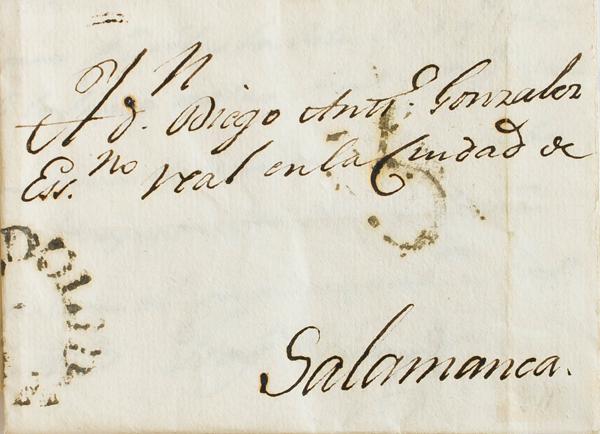 A d.n Diego Ant.o Gonzalez
Ess.no real en la Ciudad de
Salamanca.
5